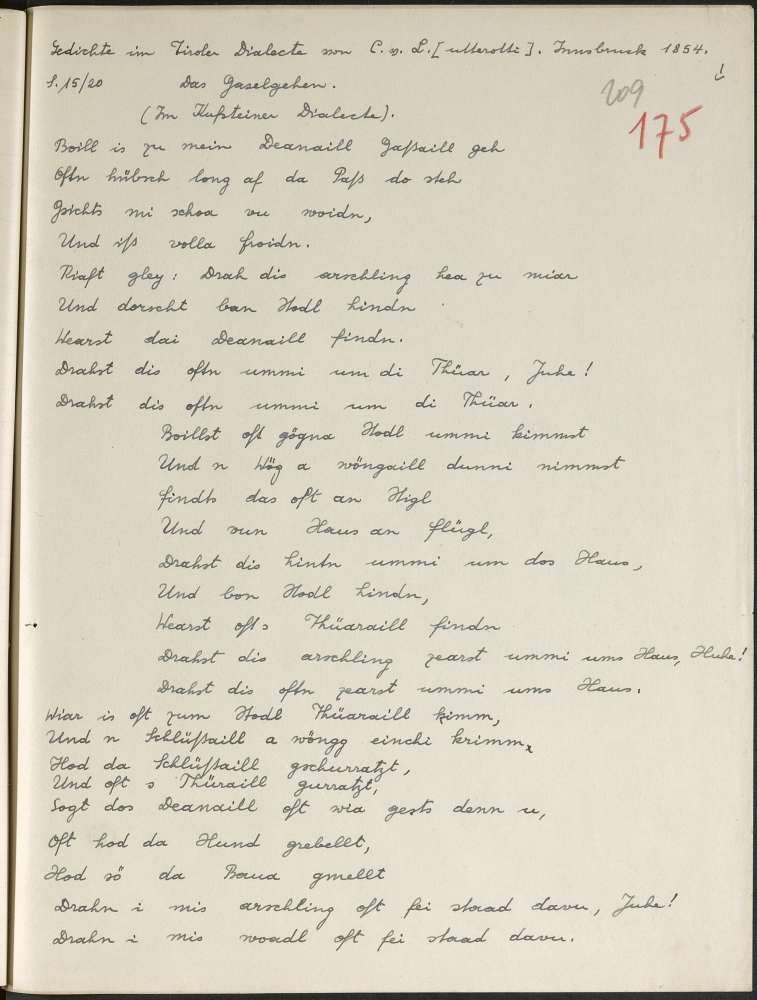 Gedichte im Tiroler Dialecte von C. v. L. [utterotti]. Innsbruck 1854.
S. 15/20 Das Gaselgehen. !
(Im Kufsteiner Dialecte). 209
175
Boill is zu mein Deanaill Gaßaill geh
Oftn hübsch long af da Paß do steh
Gsichts mi schoa vu woidn,
Und iß volla froidn.
Riaft gley: Drah dis arschling hea zu miar
Und dorscht ban Stodl hindn
Wearst dai Deanaill findn.
Drahst dis oftn ummi um di Thüar, Juhe!
Drahst dis oftn ummi um di Thüar.
Boillst oft gögna Stodl ummi kimmst
Und n Wög a wöngaill dunni nimmst
findts das oft an Higl
Und vun Haus an flügl,
Drahst dis hintn ummi um dos Haus,
Und bon Stodl hindn,
Wearst ofts Thüaraill findn
Drahst dis arschling zearst ummi ums Haus, Huhe!
Drahst dis oftn zearst ummi ums Haus.
Wiar is oft zum Stodl Thüaraill kimm,
Und n Schlüßaill a wöngg einchi krimm,
Hod da Schlüßaill gschurratzt,
Und oft s Thüraill gurratzt,
Sogt dos Deanaill oft wia gests denn u,
Oft hod da Hund grebellt,
Hod sö da Baua gmellt
Drahn i mis arschling oft fei staad davu, Juhe!
Drahn i mis woadl oft fei staad davu.